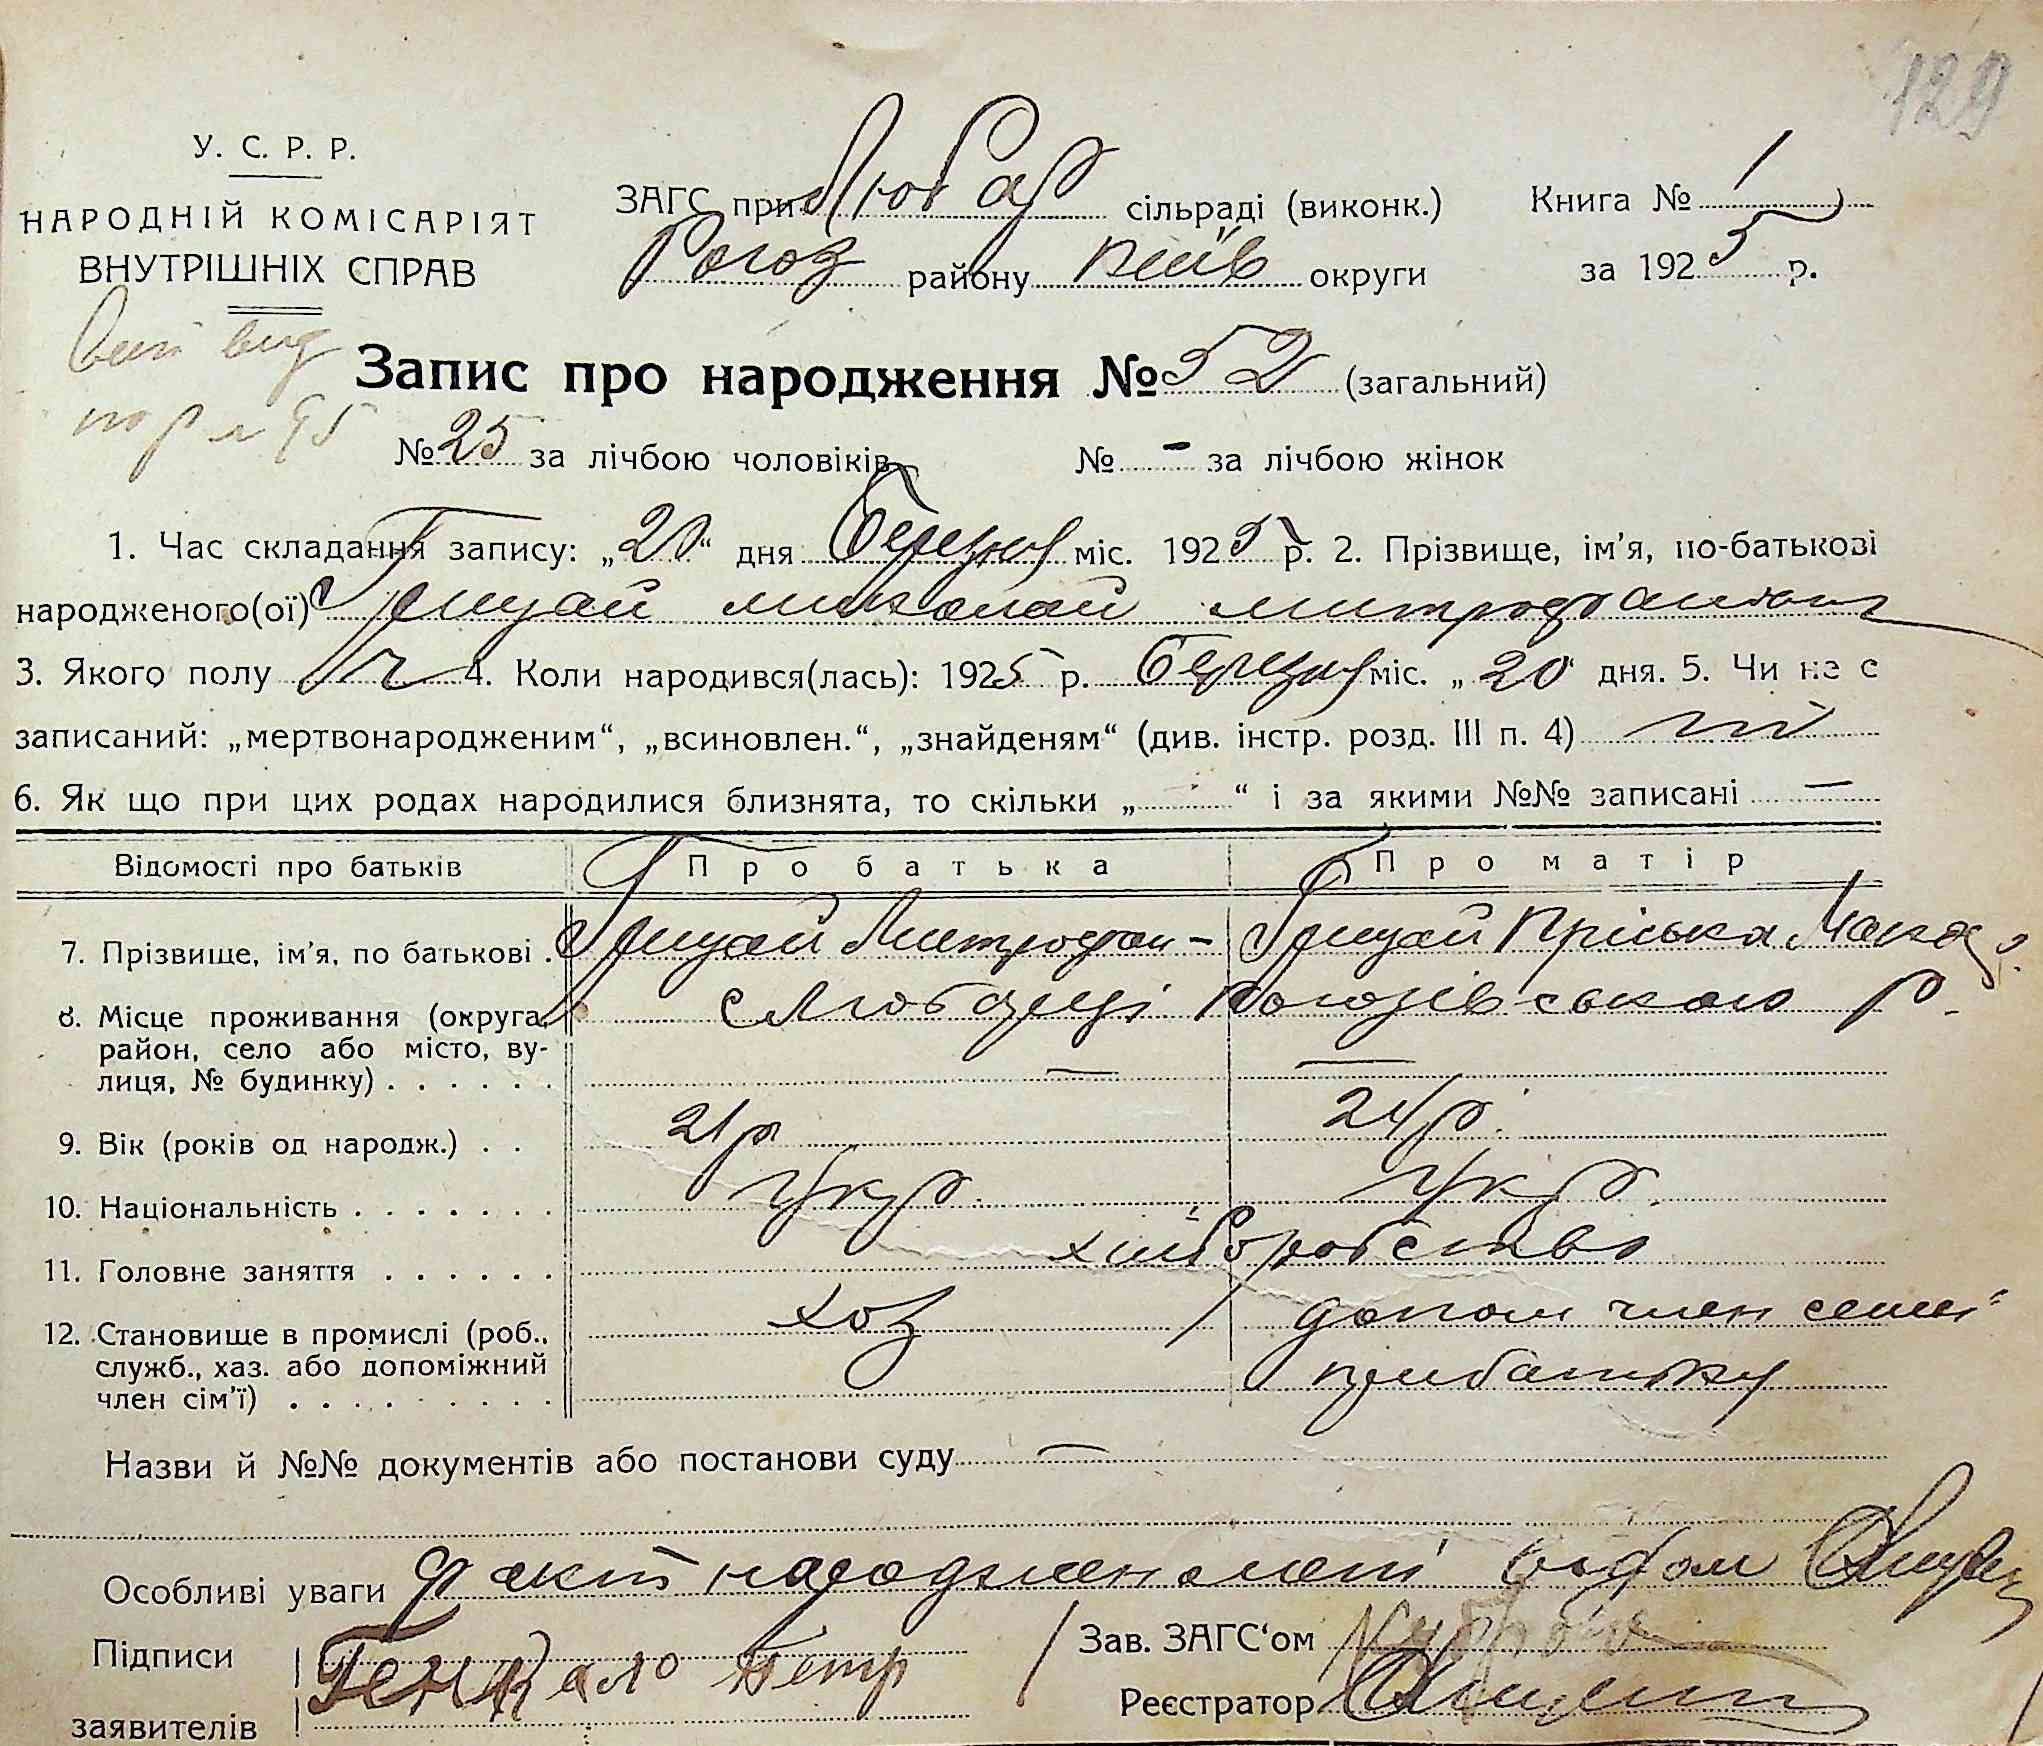 129
У. С. Р. Р.
НАРОДНІЙ КОМІСАРІЯТ
ВНУТРІШНІХ СПРАВ
ЗАГС при Любар сільраді (виконк.)
Рогоз району Київ округи
Книга № 1
за 1925 р.
Запис про народження № 52 (загальний)
№ 25 за лічбою чоловіків № - за лічбою жінок
1. Час складання запису: „20“ дня Березня міс. 1925 р. 2. Прізвище, ім'я, по-батькові
народженого(ої) Грицай Миколай Митрофанович
3. Якого полу ч 4. Коли народився(лась): 1925 р. Березня міс. „20“ дня. 5. Чи не є
записаний: „мертвонародженим“, „всиновлен.“, „знайденям“ (див. інстр. розд. III п. 4) ні
6. Як що при цих родах народилися близнята, то скільки „-“ і за якими №№ записані —
Відомості про батьків Про батька Про матір
7. Прізвище, ім'я, по батькові . Грицай Митрофан - Грицай Пріська Макар
8. Місце проживання (округа, район, село або місто, вулиця, № будинку) . . . . . . с Любарці Рогозівського р.
— —
9. Вік (років од народж.) . . 21 р 24 р.
10. Національність . . . . . . . Укр. Укр.
11. Головне заняття . . . . . . хліборобство
12. Становище в промислі (роб., служб., хаз. або допоміжний член сім'ї) . . . . . . . . . хоз / допом член семьі
прибатьку
Назви й №№ документів або постанови суду —
Особливі уваги факт народження
Підписи
заявителів
Петр
Зав. ЗАГС'ом
Реєстратор